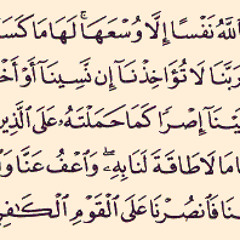 ٱللَّهُ نَفْسًا إِلَّا وُسْعَهَا ۚ لَهَا مَا كَسَ
رَبَّنَا لَا تُؤَاخِذْنَآ إِن نَّسِينَآ أَوْ أَخْ
يْنَآ إِصْرًا كَمَا حَمَلْتَهُۥ عَلَى ٱلَّذِي
مَا لَا طَاقَةَ لَنَا بِهِۦ ۖ وَٱعْفُ عَنَّا وَ
نَا فَٱنصُرْنَا عَلَى ٱلْقَوْمِ ٱلْكَٰفِ